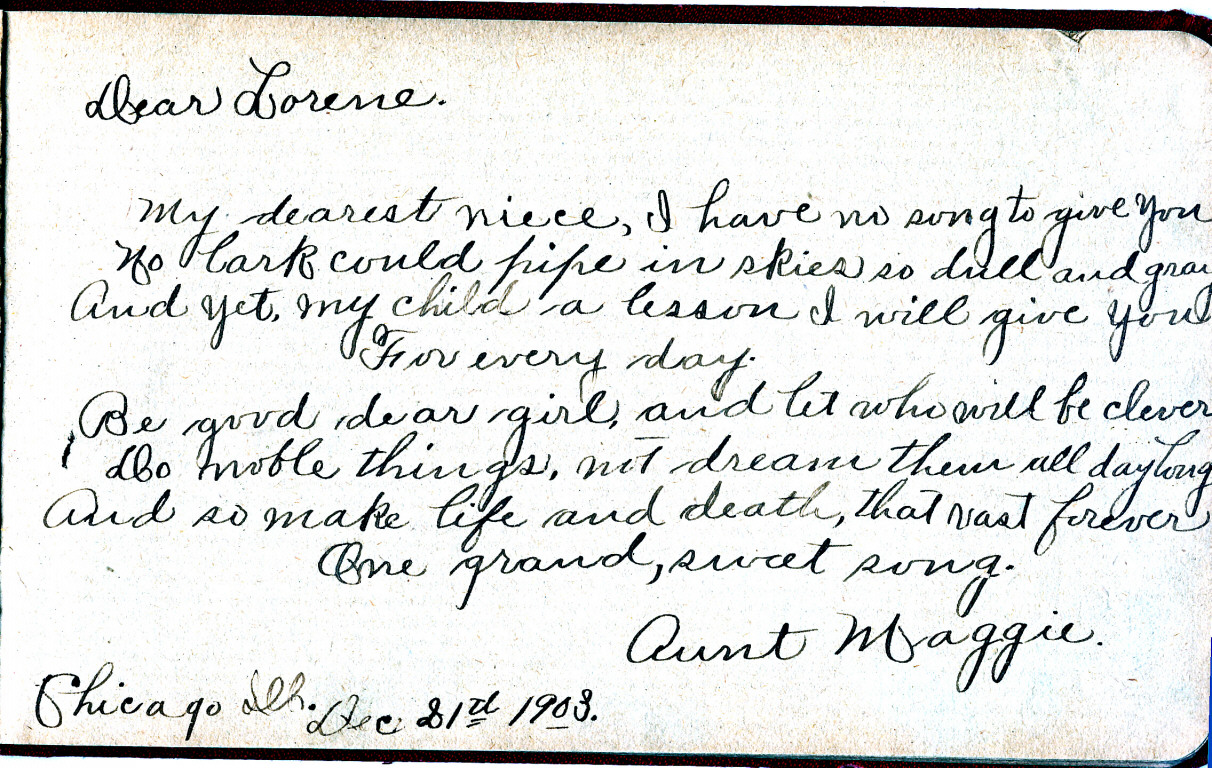 Dear Lorene.
My dearest niece, I have no song to give you
No lark could pipe in skies so dull and gray
And yet, my child a lesson I will give you
For every day.
Be good dear girl, and let who will be clever
Do noble things, not dream them all day long
And so make life and death, that vast forever
One grand, sweet song.
Aunt Maggie.
Chicago Ills. Dec 21st 1903.